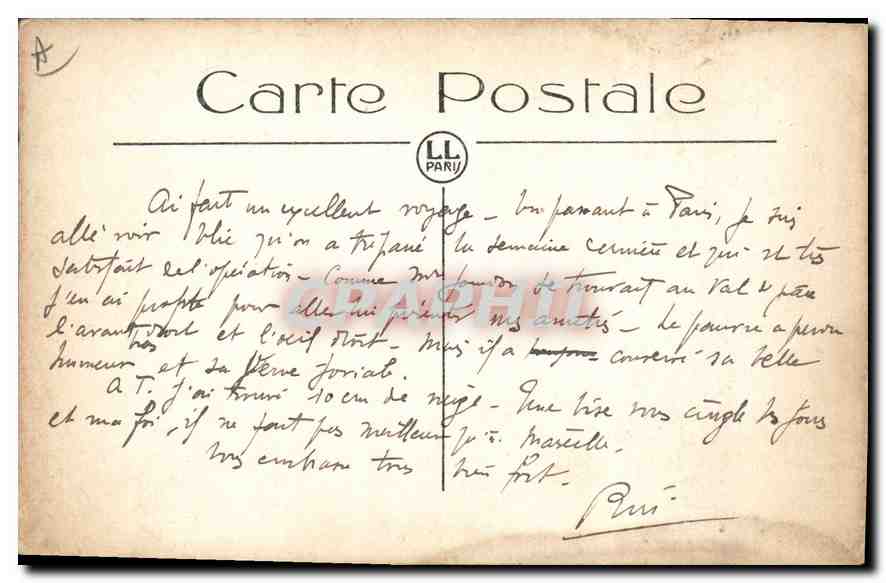 A
Carte Postale
LL
PARIS
Ai fait un excellent voyage – En passant à Paris, je suis
allé voir qu'on a trépané la semaine dernière et qui est très
satisfait de l'opération – Comme Mr se trouvait au Val de Grâce
j'en ai profité pour aller lui présenter mes amitiés – Le pauvre a perdu
l'avant bras droit et l'oeil droit – Mais il a conservé sa belle
humeur et sa verve joviale.
A T. j'ai trouvé 10 cm de neige – Une bise vous cingle les joues
et ma foi, il ne fait pas meilleur qu'à Marseille –
Vous embrasse tous bien fort –
René
CPAPHIL